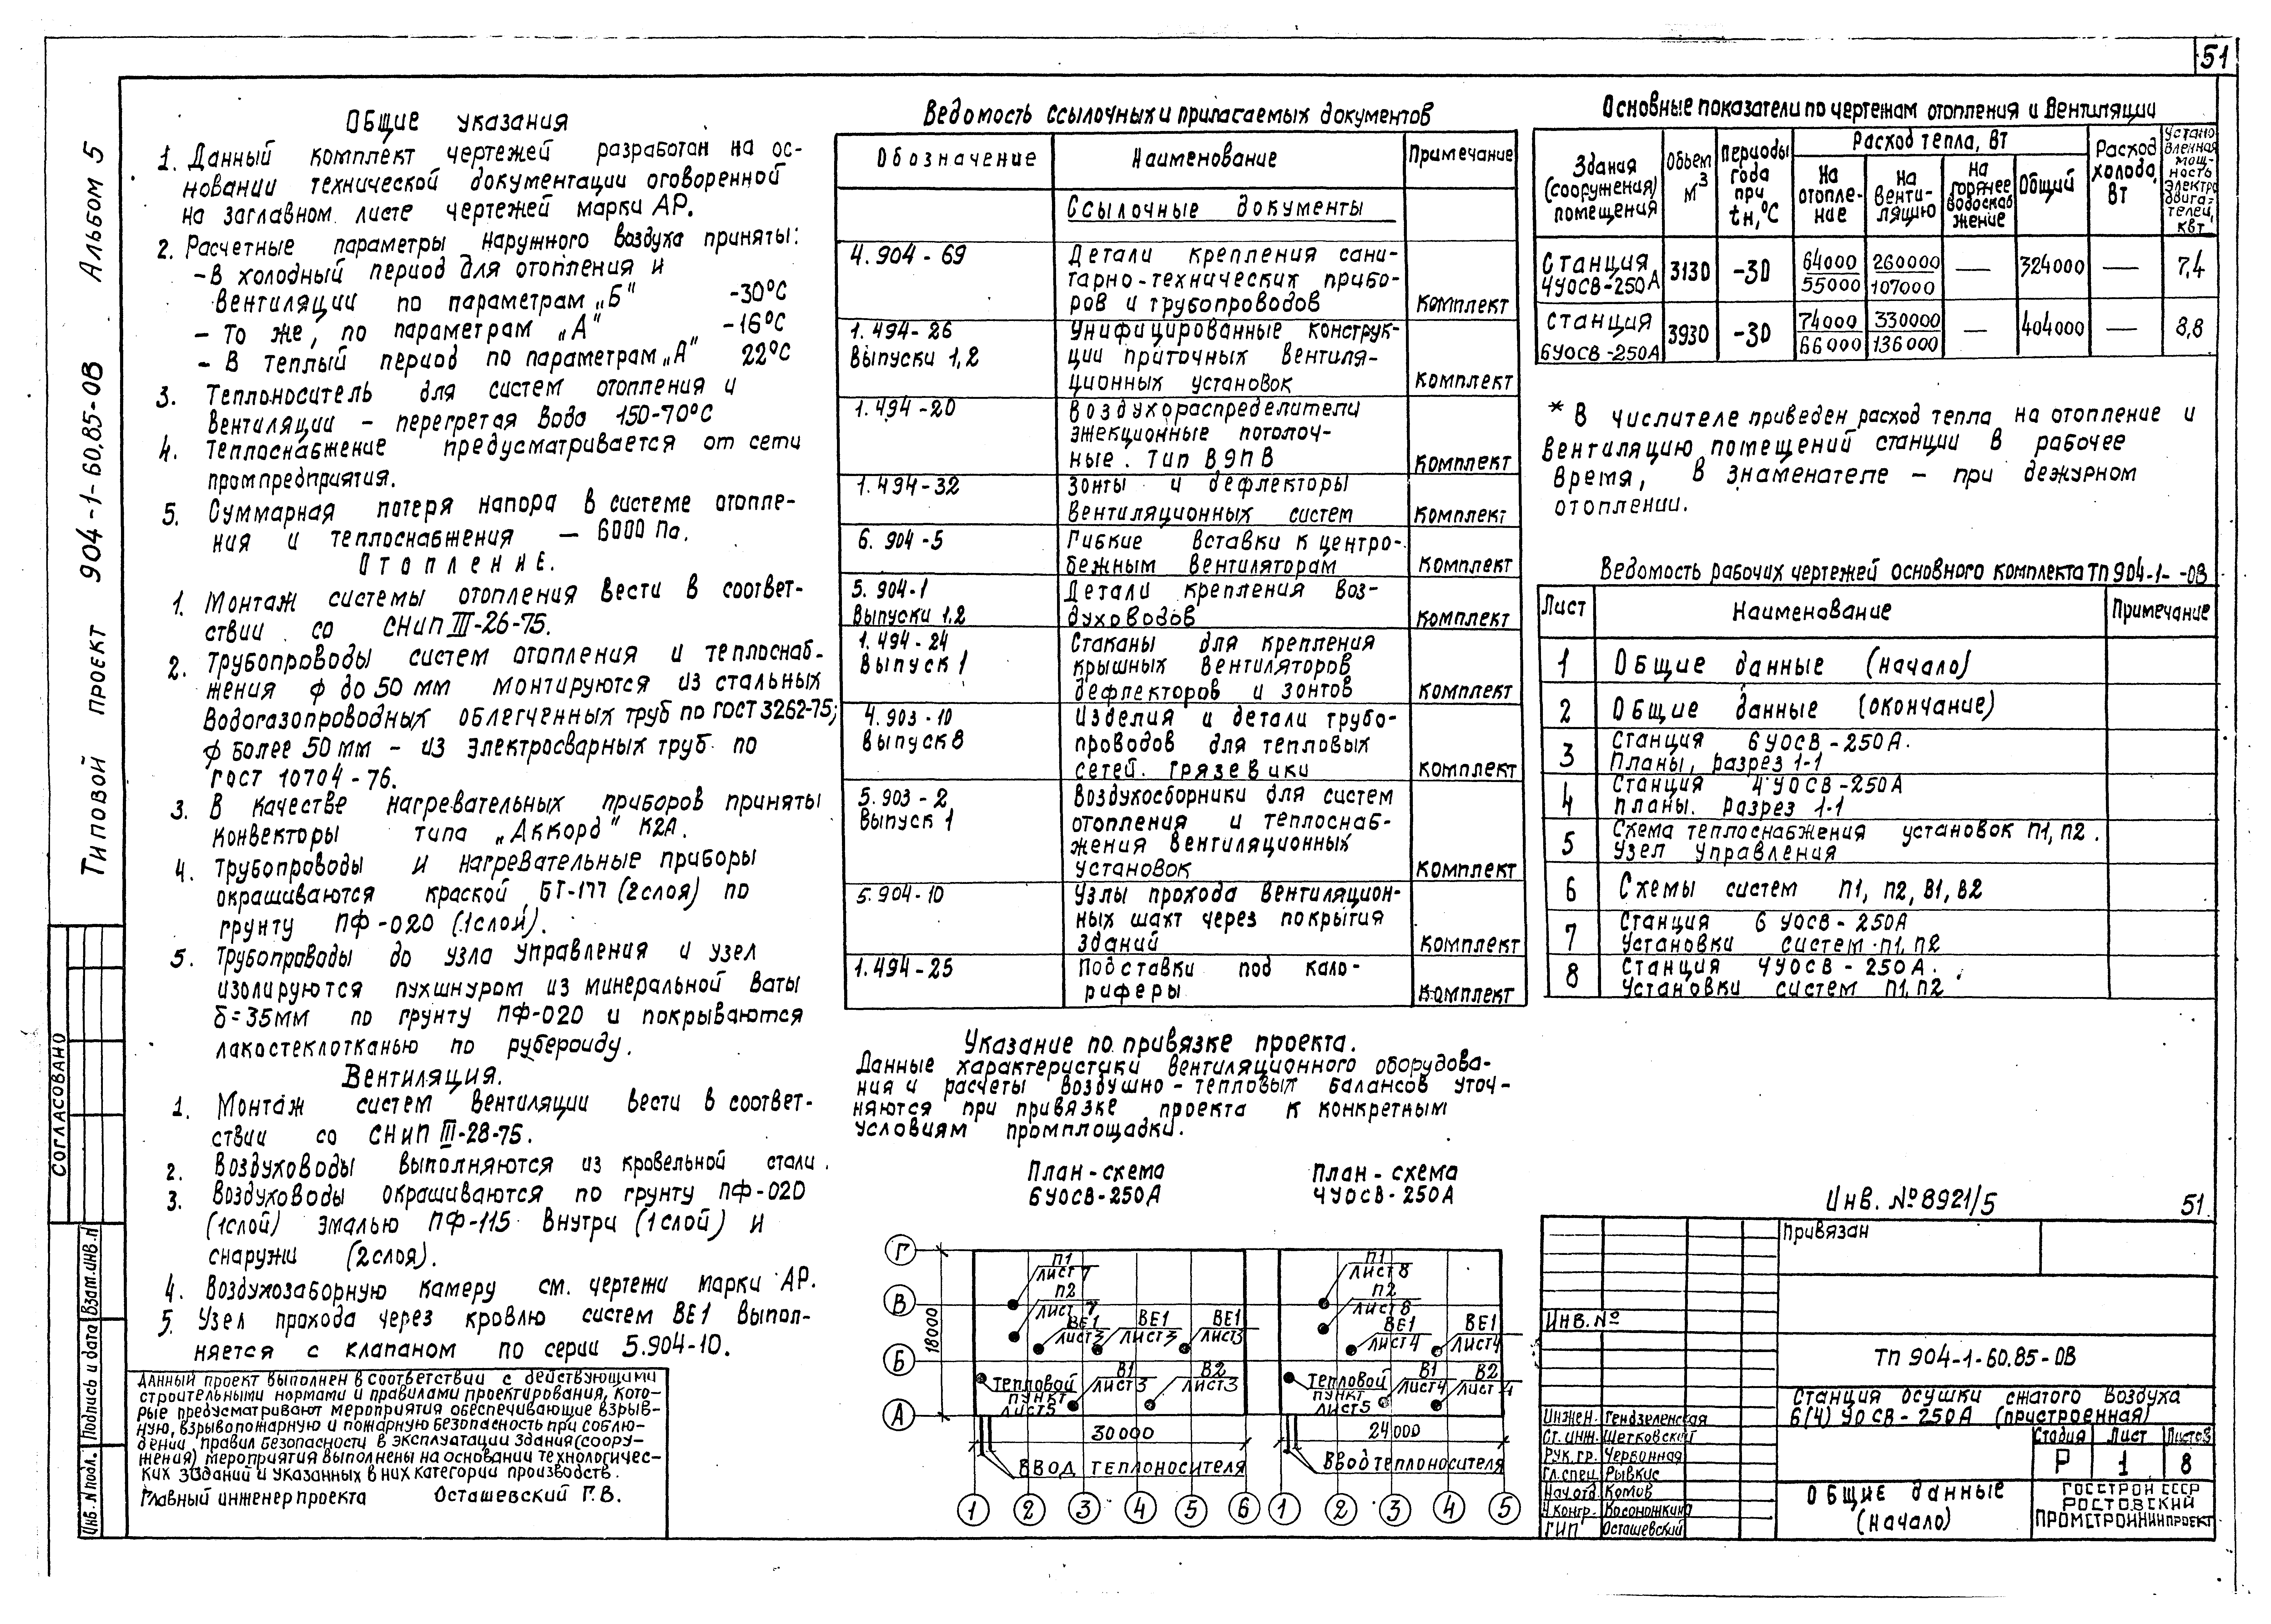 51
Типовой проект 904-1-60.85-ОВ Альбом 5
Общие указания
1. Данный комплект чертежей разработан на ос-
новании технической документации оговоренной
на заглавном листе чертежей марки АР.
2. Расчетные параметры наружного воздуха приняты:
- В холодный период для отопления и
вентиляции по параметрам „Б" -30°С
- То же, по параметрам „А" -16°С
- В теплый период по параметрам „А" 22°С
3. Теплоноситель для систем отопления и
вентиляции - перегретая вода 150-70°С
4. Теплоснабжение предусматривается от сети
промпредприятия.
5. Суммарная потеря напора в системе отопле-
ния и теплоснабжения - 6000 Па.
Отопление.
1. Монтаж системы отопления вести в соответ-
ствии со СНиП III-26-75.
2. Трубопроводы систем отопления и теплоснаб-
жения ф до 50 мм монтируются из стальных
водогазопроводных облегченных труб по ГОСТ 3262-75;
ф более 50 мм - из электросварных труб по
ГОСТ 10704-76.
3. В качестве нагревательных приборов приняты
конвекторы типа „Аккорд" К2А.
4. Трубопроводы и нагревательные приборы
окрашиваются краской БТ-177 (2слоя) по
грунту ПФ-020 (1слой).
5. Трубопроводы до узла управления и узел
изолируются пухшнуром из минеральной ваты
δ=35мм по грунту ПФ-020 и покрываются
лакостеклотканью по рубероиду.
Вентиляция.
1. Монтаж систем вентиляции вести в соответ-
ствии со СНиП III-28-75.
2. Воздуховоды выполняются из кровельной стали.
3. Воздуховоды окрашиваются по грунту ПФ-020
(1слой) эмалью ПФ-115 внутри (1слой) и
снаружи (2слоя).
4. Воздухозаборную камеру см. чертежи марки АР.
5. Узел прохода через кровлю систем ВЕ1 выпол-
няется с клапаном по серии 5.904-10.
Данный проект выполнен в соответствии с действующими
строительными нормами и правилами проектирования, кото-
рые предусматривают мероприятия обеспечивающие взрыв-
ную, взрывопожарную и пожарную безопасность при соблю-
дении правил безопасности в эксплуатации здания (соору-
жения) мероприятия выполнены на основании технологичес-
ких заданий и указанных в них категории производств.
Главный инженер проекта Осташевский Г.В.
Ведомость ссылочных и прилагаемых документов
Обозначение Наименование Примечание
Ссылочные документы
4.904-69 Детали крепления сани-
тарно-технических прибо-
ров и трубопроводов Комплект
1.494-26 Унифицированные конструк-
Выпуски 1,2 ции приточных вентиля-
ционных установок Комплект
1.494-20 Воздухораспределители
эжекционные потолоч-
ные. Тип ВЭПВ Комплект
1.494-32 Зонты и дефлекторы
вентиляционных систем Комплект
6.904-5 Гибкие вставки к центро-
бежным вентиляторам Комплект
5.904-1 Детали крепления воз-
Выпуски 1,2 духоводов Комплект
1.494-24 Стаканы для крепления
Выпуск 1 крышных вентиляторов
дефлекторов и зонтов Комплект
4.903-10 Изделия и детали трубо-
Выпуск 8 проводов для тепловых
сетей. Грязевики Комплект
5.903-2 Воздухосборники для систем
Выпуск 1 отопления и теплоснаб-
жения вентиляционных
установок Комплект
5.904-10 Узлы прохода вентиляцион-
ных шахт через покрытия
зданий Комплект
1.494-25 Подставки под кало-
риферы Комплект
Указание по привязке проекта.
Данные характеристики вентиляционного оборудова-
ния и расчеты воздушно-тепловых балансов уточ-
няются при привязке проекта к конкретным
условиям промплощадки.
План-схема
6УОСВ-250А
Г
В
Б
А
18000
П1
Лист 7
П2
Лист 7
ВЕ1
Лист 3
ВЕ1
Лист 3
ВЕ1
Лист 3
Тепловой
пункт
Лист 5
В1
Лист 3
В2
Лист 3
30000
Ввод теплоносителя
1 2 3 4 5 6
План-схема
4УОСВ-250А
П1
Лист 8
П2
Лист 8
ВЕ1
Лист 4
ВЕ1
Лист 4
Тепловой
пункт
Лист 5
В1
Лист 4
В2
Лист 4
24000
Ввод теплоносителя
1 2 3 4 5
Основные показатели по чертежам отопления и вентиляции
Здания (сооружения) помещения
Объем м3
Периоды года при tн,°С
Расход тепла, Вт
На отопле-ние
На венти-ляцию
На горячее водоснабжение
Общий
Расход холода, Вт
Установленная мощ-ность электродвига-телей, кВт
Станция 4УОСВ-250А 3130 -30 64000/55000 260000/107000 — 324000 — 7,4
Станция 6УОСВ-250А 3930 -30 74000/66000 330000/136000 — 404000 — 8,8
* В числителе приведен расход тепла на отопление и
вентиляцию помещений станции в рабочее
время, в знаменателе - при дежурном
отоплении.
Ведомость рабочих чертежей основного комплекта ТП 904-1- -ОВ
Лист Наименование Примечание
1 Общие данные (начало)
2 Общие данные (окончание)
3 Станция 6УОСВ-250А.
Планы, разрез 1-1
4 Станция 4УОСВ-250А
Планы. Разрез 1-1
5 Схема теплоснабжения установок П1, П2.
Узел управления
6 Схемы систем П1, П2, В1, В2
7 Станция 6УОСВ-250А
Установки систем П1, П2
8 Станция 4УОСВ-250А.
Установки систем П1, П2
Инв. №8921/5 51
Привязан
Инв.№
ТП 904-1-60.85-ОВ
Станция осушки сжатого воздуха
6(4)УОСВ-250А (пристроенная)
Инжен. Гендзеленская
Ст. инж. Щетковский
Рук. гр. Червонная
Гл. спец. Рывкис
Нач. отд. Комов
Н.контр. Косоножкина
ГИП Осташевский
Стадия Лист Листов
Р 1 8
Общие данные
(начало)
ГОССТРОЙ СССР
РОСТОВСКИЙ
ПРОМСТРОЙНИИПРОЕКТ
СОГЛАСОВАНО
Взам.инв.N
Подпись и дата
Инв. N подл.